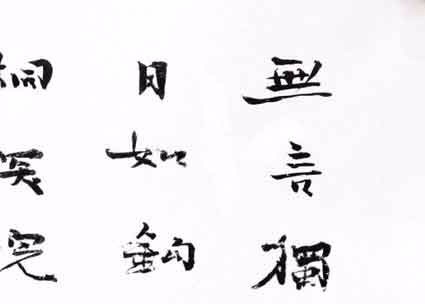 無言獨
月如鈎
桐深院